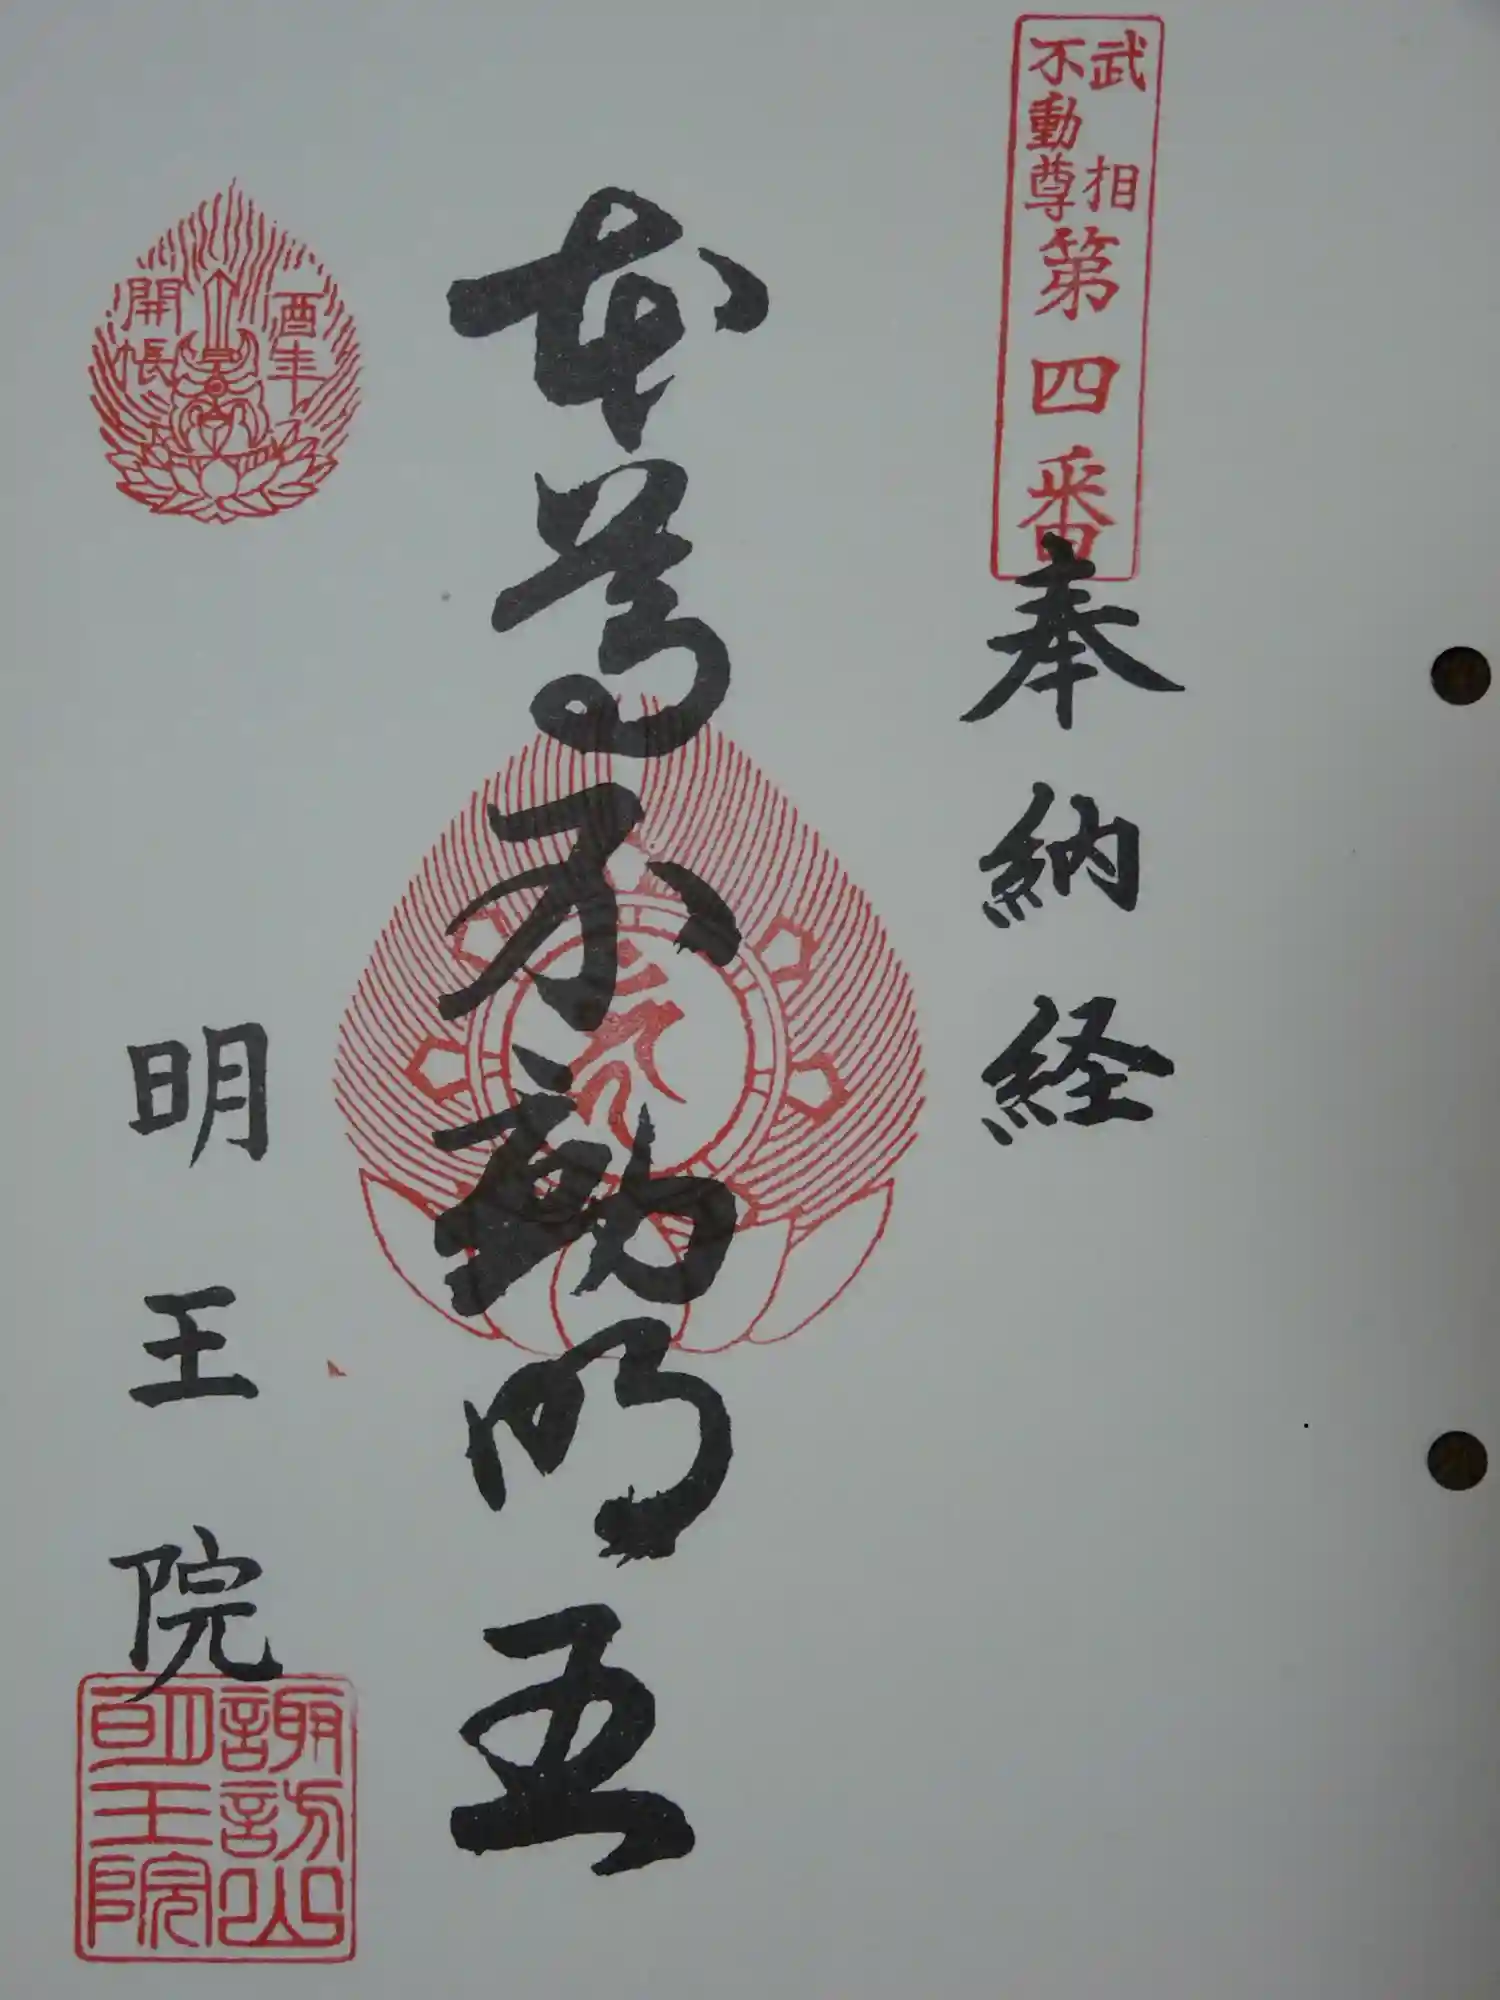 武相
不動尊
第四番
奉納経
本尊不動明王
酉年
開帳
明王院
諏訪山
明王院